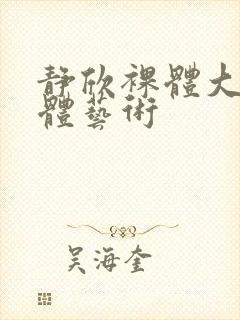 靜欣裸體大
體藝術
吳海奎